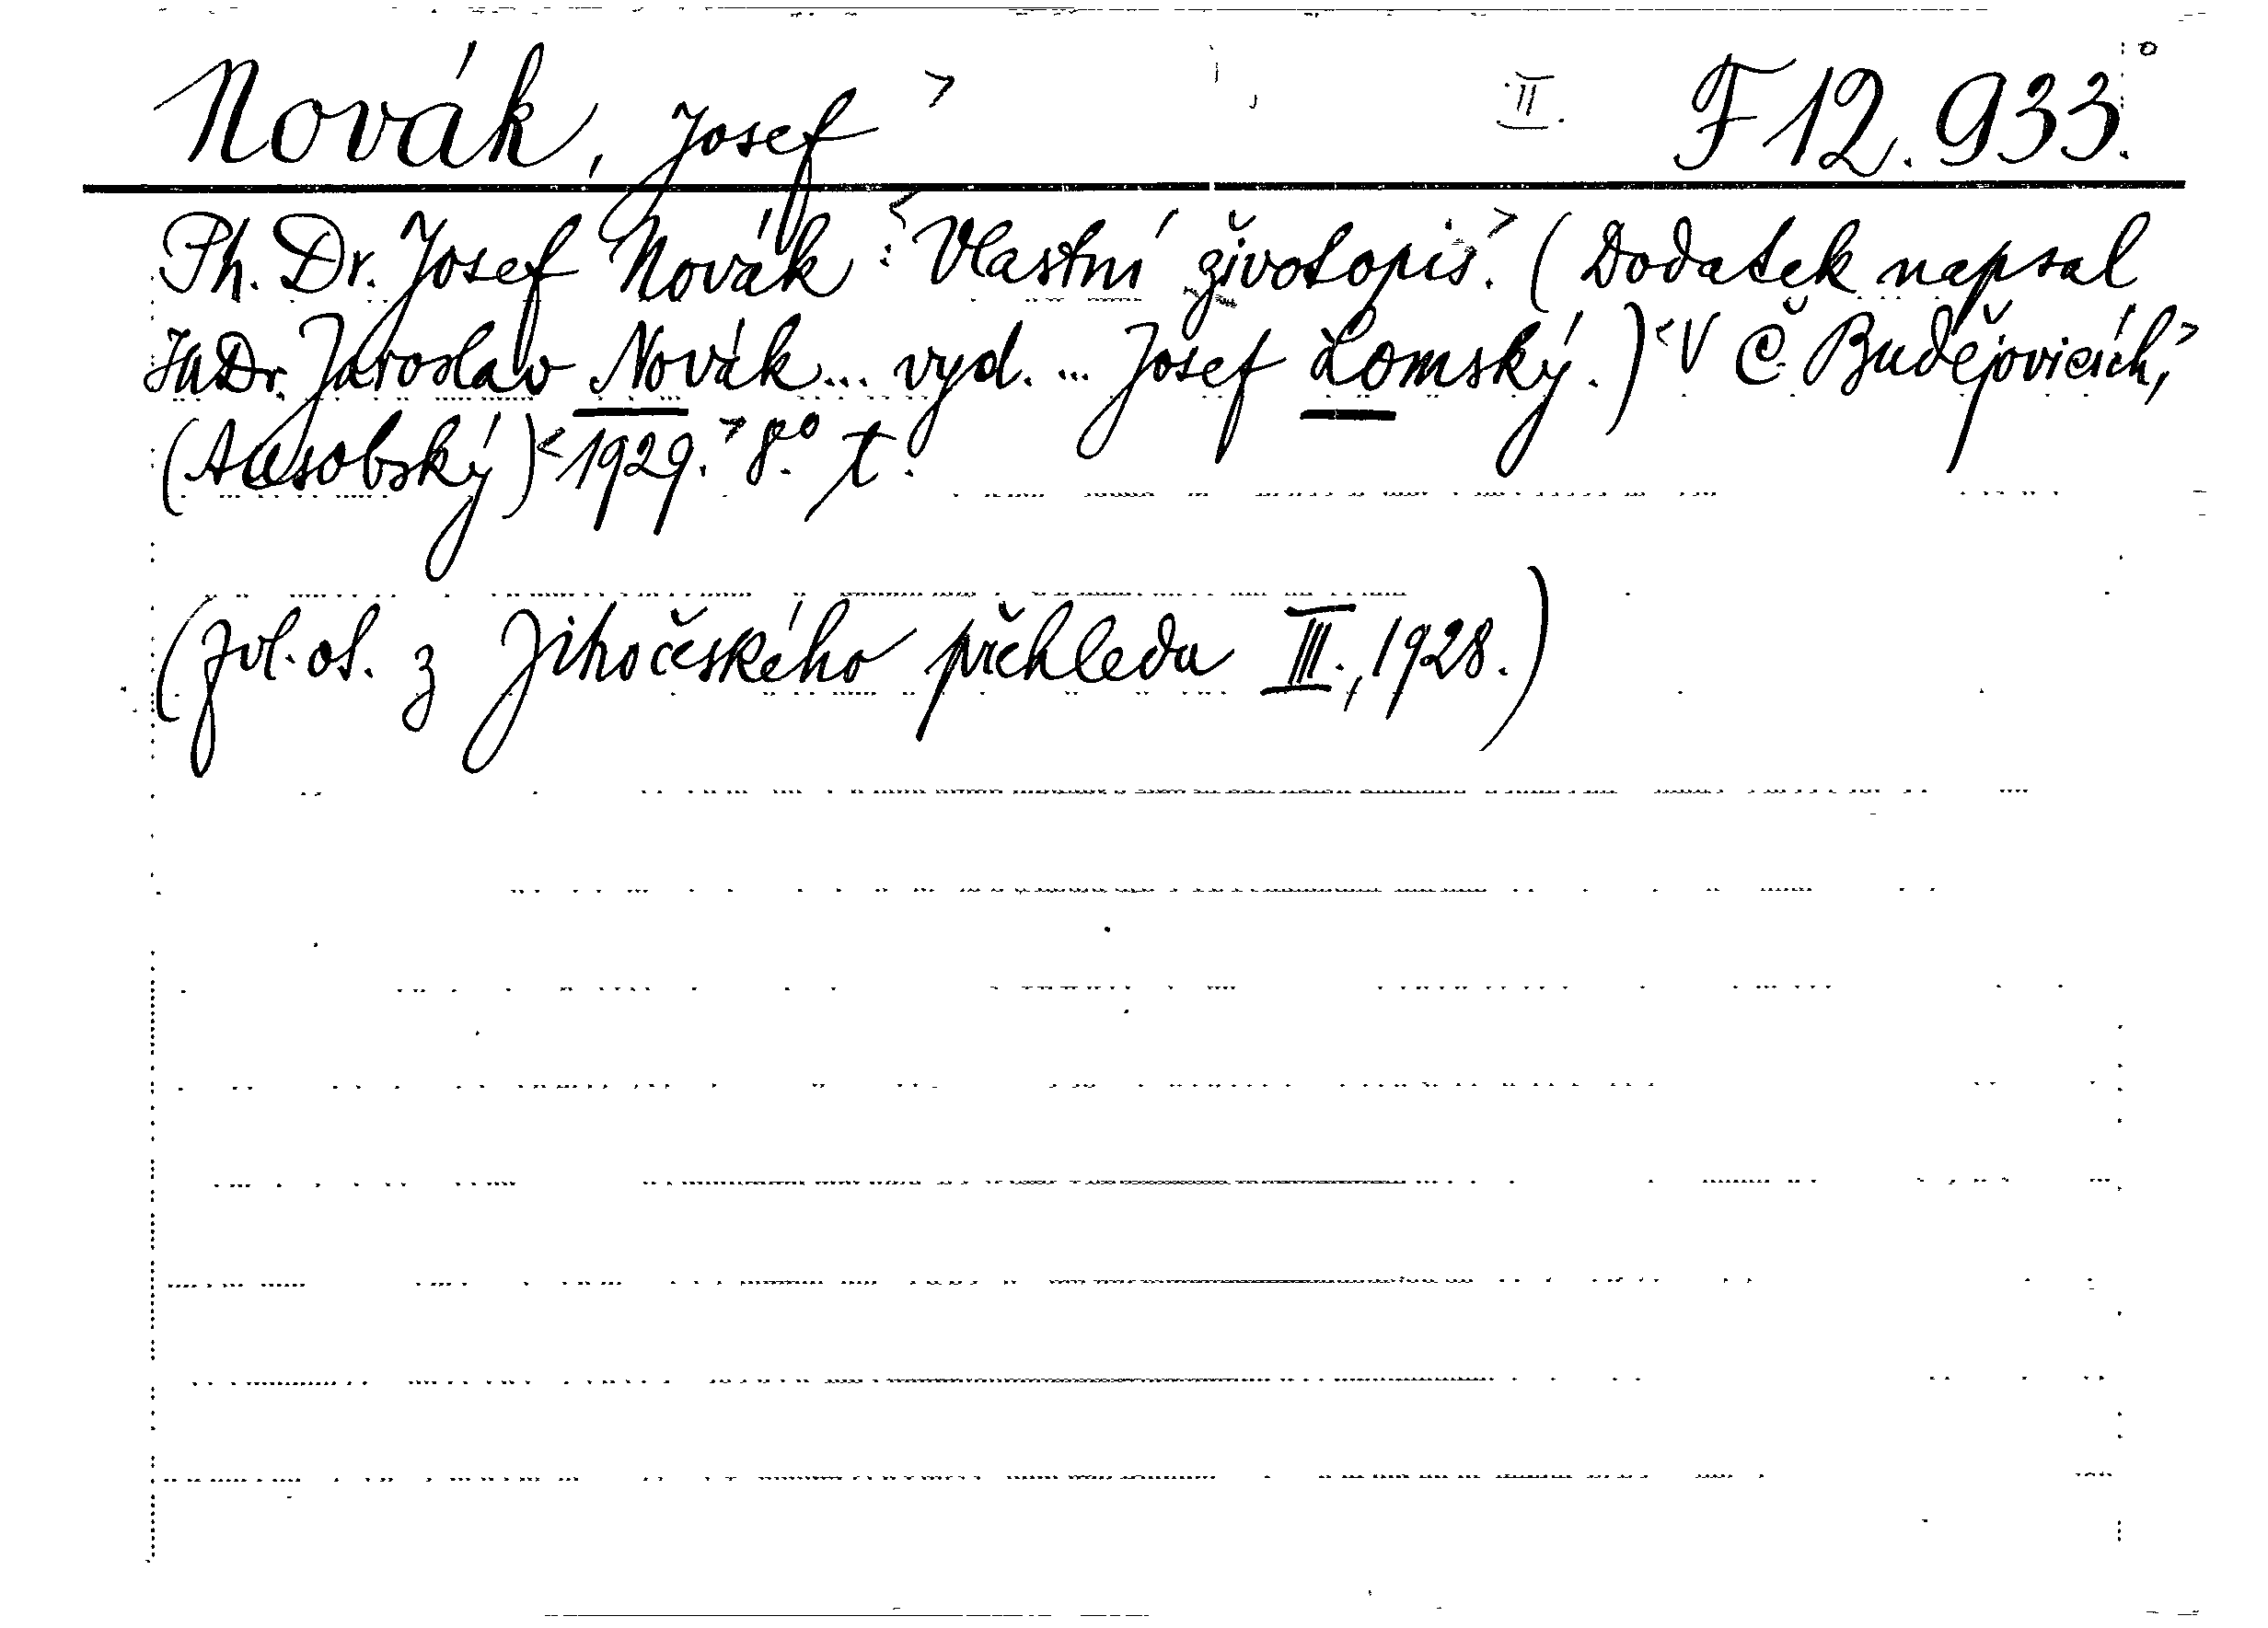 Novák, Josef > II. F 12.933.
Ph. Dr. Josef Novák : <Vlastní životopis.> (Dodatek napsal
JUDr. Jaroslav Novák... vyd. ... Josef Lomský.) <V Č. Budějovicích,>
(Ausobský) <1929.> 8.° t.
(zvl. ot. z Jihočeského přehledu III., 1928.)